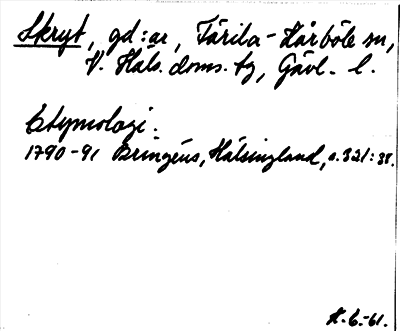 Skryt, gd:ar, Färila-Kårböle sn,
V. Häls. doms. tg, Gävl. l.
Etymologi.
1790-91 Bringéus, Hälsingland, s. 321:38.
H.G.-61.